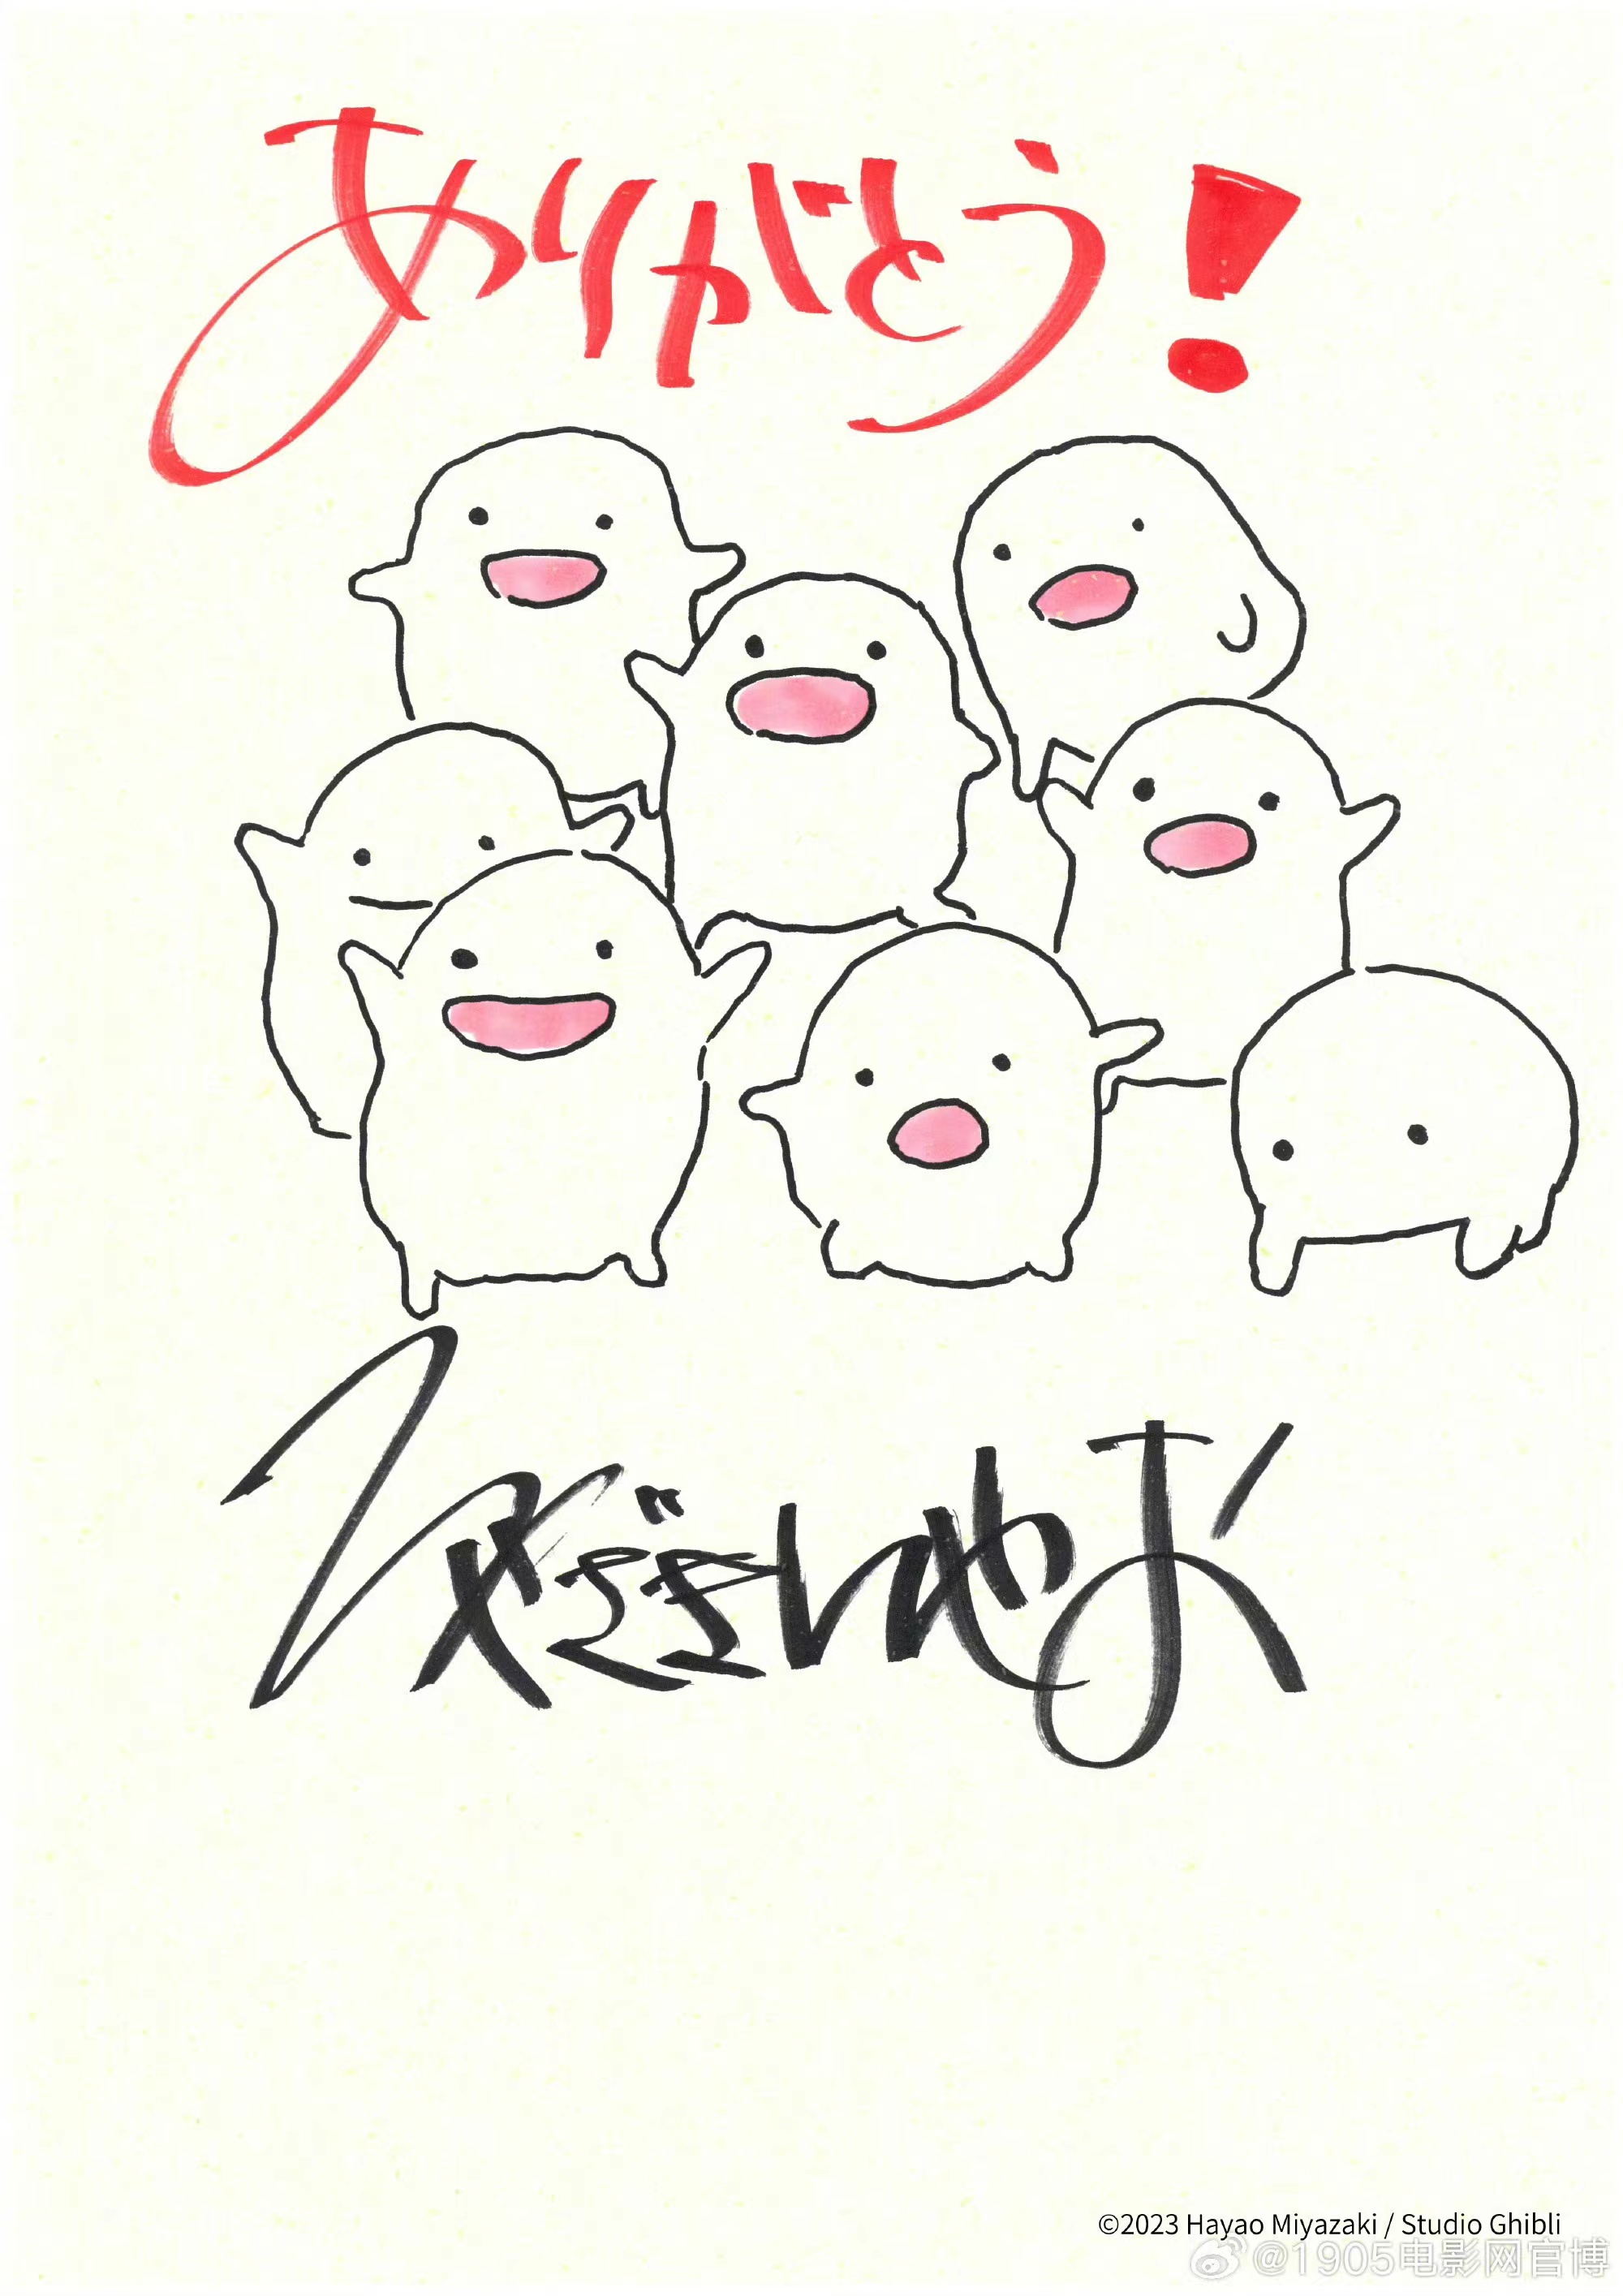 ありがとう!
みやざきはやお
©2023 Hayao Miyazaki / Studio Ghibli
@1905电影网官博